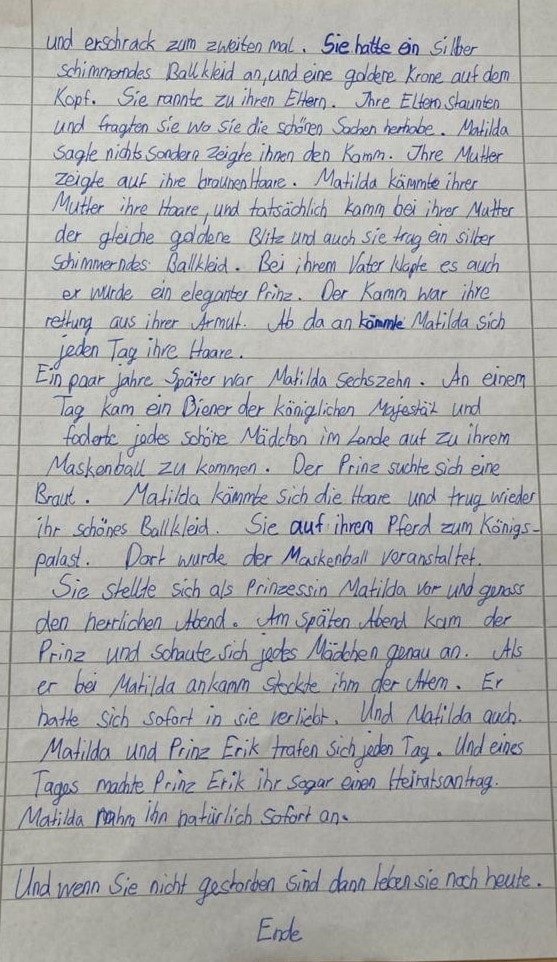 und erschrack zum zweiten mal. Sie hatte ein silber
schimmerndes Ballkleid an, und eine goldere Krone auf dem
Kopf. Sie rannte zu ihren Eltern. Ihre Eltern staunten
und fragten sie wo sie die schönen Sachen herhabe. Matilda
sagte nichts sondern zeigte ihnen den Kamm. Ihre Mutter
zeigte auf ihre braunen Haare. Matilda kämmte ihrer
Mutter ihre Haare, und tatsächlich kamm bei ihrer Mutter
der gleiche goldene Blitz und auch sie trug ein silber
schimmerndes Ballkleid. Bei ihrem Vater klapte es auch
er wurde ein eleganter Prinz. Der Kamm war ihre
rettung aus ihrer Armut. Ab da an kämmte Matilda sich
jeden Tag ihre Haare.
Ein paar jahre Später war Matilda sechszehn. An einem
Tag kam ein Diener der königlichen Majestät und
foderte jedes schöne Mädchen im Lande auf zu ihrem
Maskenball zu kommen. Der Prinz suchte sich eine
Braut. Matilda kämmte sich die Haare und trug wieder
ihr schönes Ballkleid. Sie auf ihrem Pferd zum Königs-
palast. Dort wurde der Maskenball veranstaltet.
Sie stellte sich als Prinzessin Matilda vor und genoss
den herrlichen Abend. Am späten Abend kam der
Prinz und schaute sich jedes Mädchen genau an. Als
er bei Matilda ankamm stockte ihm der Atem. Er
hatte sich sofort in sie verliebt. Und Matilda auch.
Matilda und Prinz Erik trafen sich jeden Tag. Und eines
Tages machte Prinz Erik ihr sogar einen Heiratsantrag.
Matilda nahm ihn natürlich sofort an.
Und wenn Sie nicht gestorben sind dann leben sie noch heute.
Ende